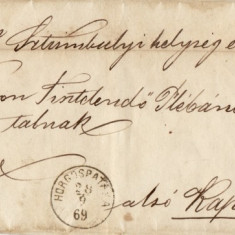 Sztambulyi helység e
Tisztelendő Plébán
talnak
HORGOSPATA
28
9
69
alsó Kap